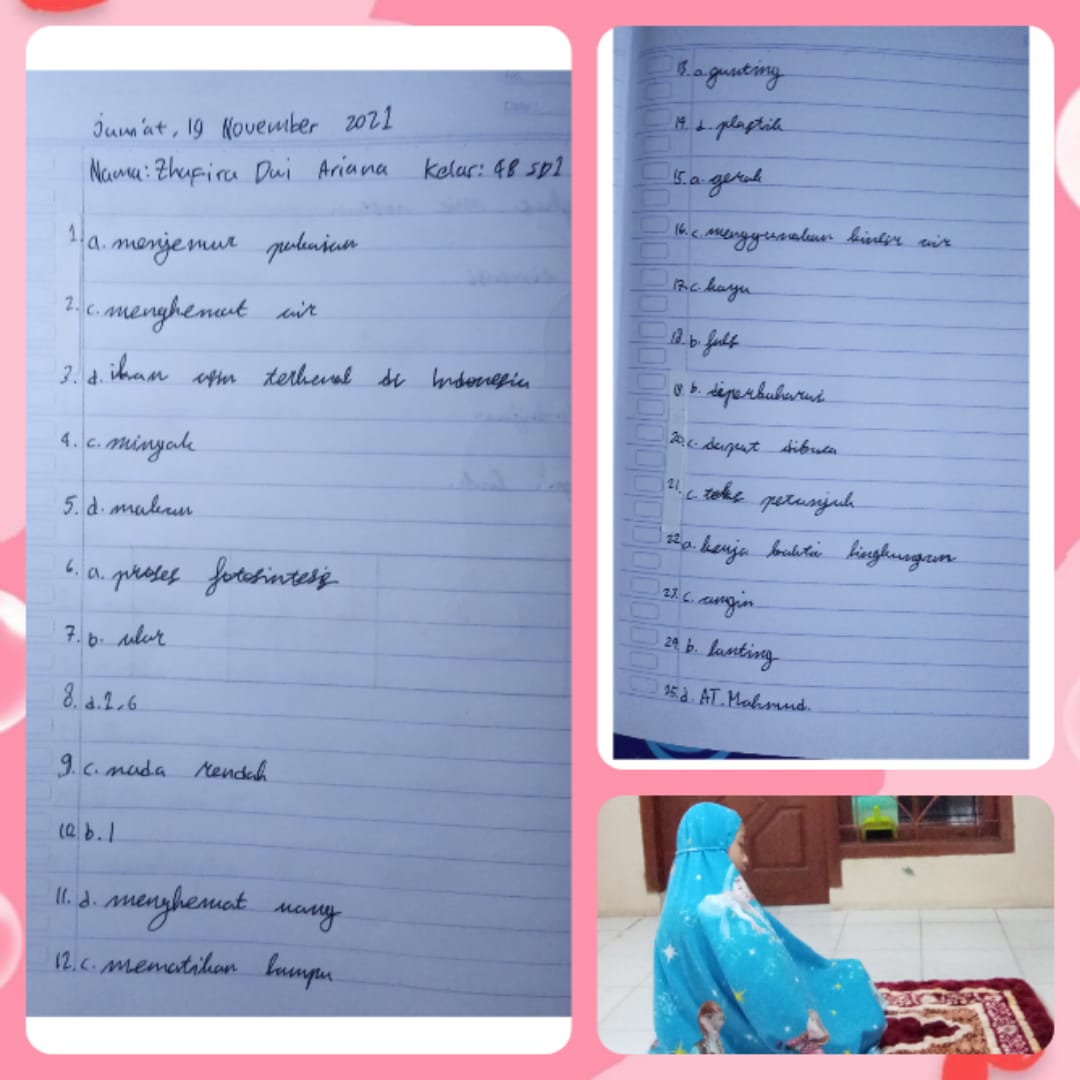 Jum'at, 19 November 2021
Nama: Zhafira Dwi Ariana Kelas: 4B SD1
1. a. menjemur pakaian
2. c. menghemat air
3. d. ikan asin terkenal di Indonesia
4. c. minyak
5. d. makan
6. a. proses fotosintesis
7. b. ulur
8. d. 2,6
9. c. nada rendah
10. b. 1
11. d. menghemat uang
12. c. mematikan lampu
13. a. gunting
14. d. plastik
15. a. gerak
16. c. menggunakan kincir air
17. c. kayu
18. b.
19. b. diperbaharui
20. c. dapat dibuca
21. c. teks petunjuk
22. a. kerja bakti lingkungan
23. c. angin
24. b. lanting
25. d. AT. Mahmud.